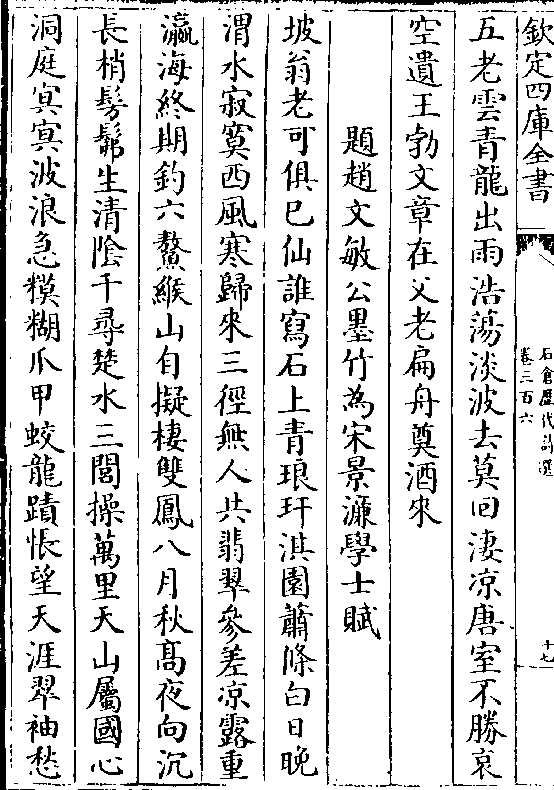 欽定四庫全書
石倉歷代詩選
卷三百六
十七
五老雲青龍出雨浩蕩淡波去莫回淒凉唐室不勝哀
空遺王勃文章在父老扁舟奠酒來
題趙文敏公墨竹為宋景濂學士賦
坡翁老可俱已仙誰寫石上青琅玕淇園蕭條白日晚
渭水寂寞西風寒歸來三徑無人共翡翠參差凉露重
瀛海終期釣六鰲緱山自擬棲雙鳳八月秋髙夜向沉
長梢髣髴生清陰千尋楚水三閭操萬里天山屬國心
洞庭㝠㝠波浪急糢糊爪甲蛟龍蹟悵望天涯翠袖愁